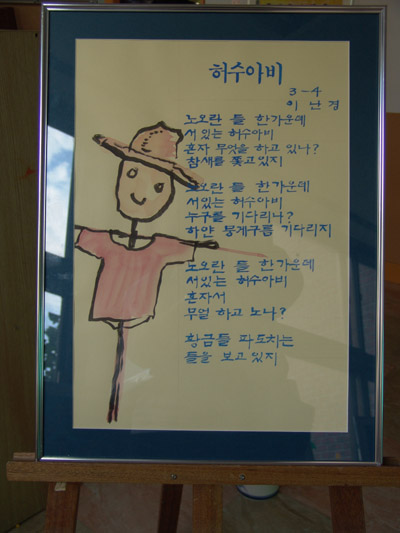 허수아비
3-4
이난경
노오란 들 한가운데
서있는 허수아비
혼자 무엇을 하고 있나?
참새를 쫓고있지
노오란 들 한가운데
서있는 허수아비
누구를 기다리나?
하얀 뭉게구름 기다리지
노오란 들 한가운데
서있는 허수아비
혼자서
무얼 하고 노나?
황금들 파도치는
들을 보고있지